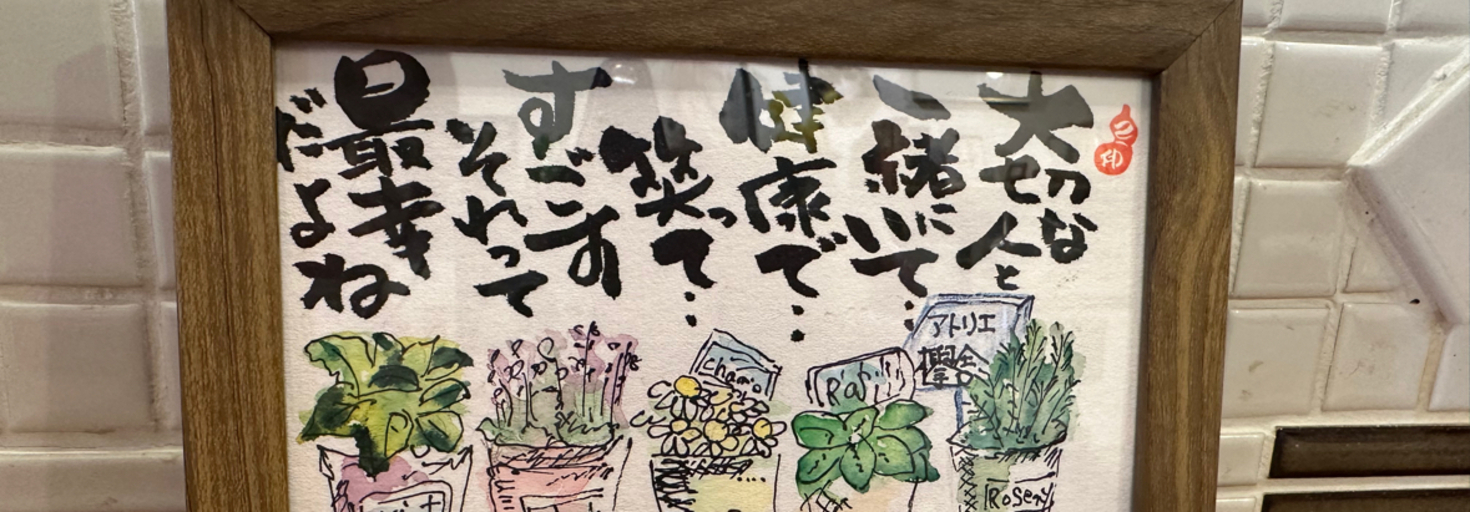 大切な人と
一緒にいて…
健康で…
笑って…
すごす
それって
最幸
だよね
アトリエ
Chamo
Rosery